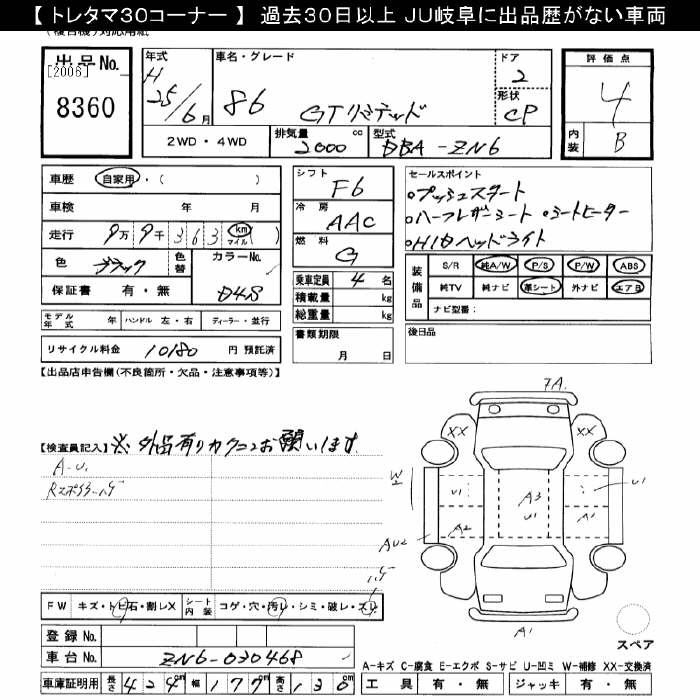 【 トレタマ30コーナー 】 過去30日以上 JU岐阜に出品歴がない車両
出品No. 年式 車名・グレード ドア 評価点
[2006] H 2
8360 25/6月 86 GTリミテッド 形状 CP 4
2WD・4WD 排気量 2000 cc 型式 DBA-ZN6 内装 B
車歴 自家用・( ) シフト F6 セールスポイント
車検 年 月 冷房 AAC 。プッシュスタート
走行 9万9千363 km マイル ( ) 燃料 G 。ハーフレザーシート 。シートヒーター
色 ブラック 色替 カラーNo. 乗車定員 4 名 。HIDヘッドライト
保証書 有・無 D4S 積載量 kg
総重量 kg
装備品 S/R 純A/W P/S P/W ABS
純TV 純ナビ 革シート 外ナビ エアB
ナビ型番:
モデル年式 年 ハンドル 左・右 ディーラー・並行 書類期限 月 日 後日品
リサイクル料金 10180 円 預託済
【出品店申告欄(不良箇所・欠品・注意事項等)】
7A.
【検査員記入】 ※ 外品有りカクニンお願いします
A-U.
Rスポイラーハゲ
XX XX
W2 U1 A3 U1
U1
AU2 A2 A1
ハゲ
FW キズ・トビ石・割レX シート内装 コゲ・穴・汚レ・シミ・破レ・スレ
登録 No.
A1 スペア
車台 No. ZN6-030468
A-キズ C-腐食 E-エクボ S-サビ U-凹ミ W-補修 XX-交換済
車庫証明用 長さ 424cm 幅 177cm 高さ 130cm 工具 有・無 ジャッキ 有・無